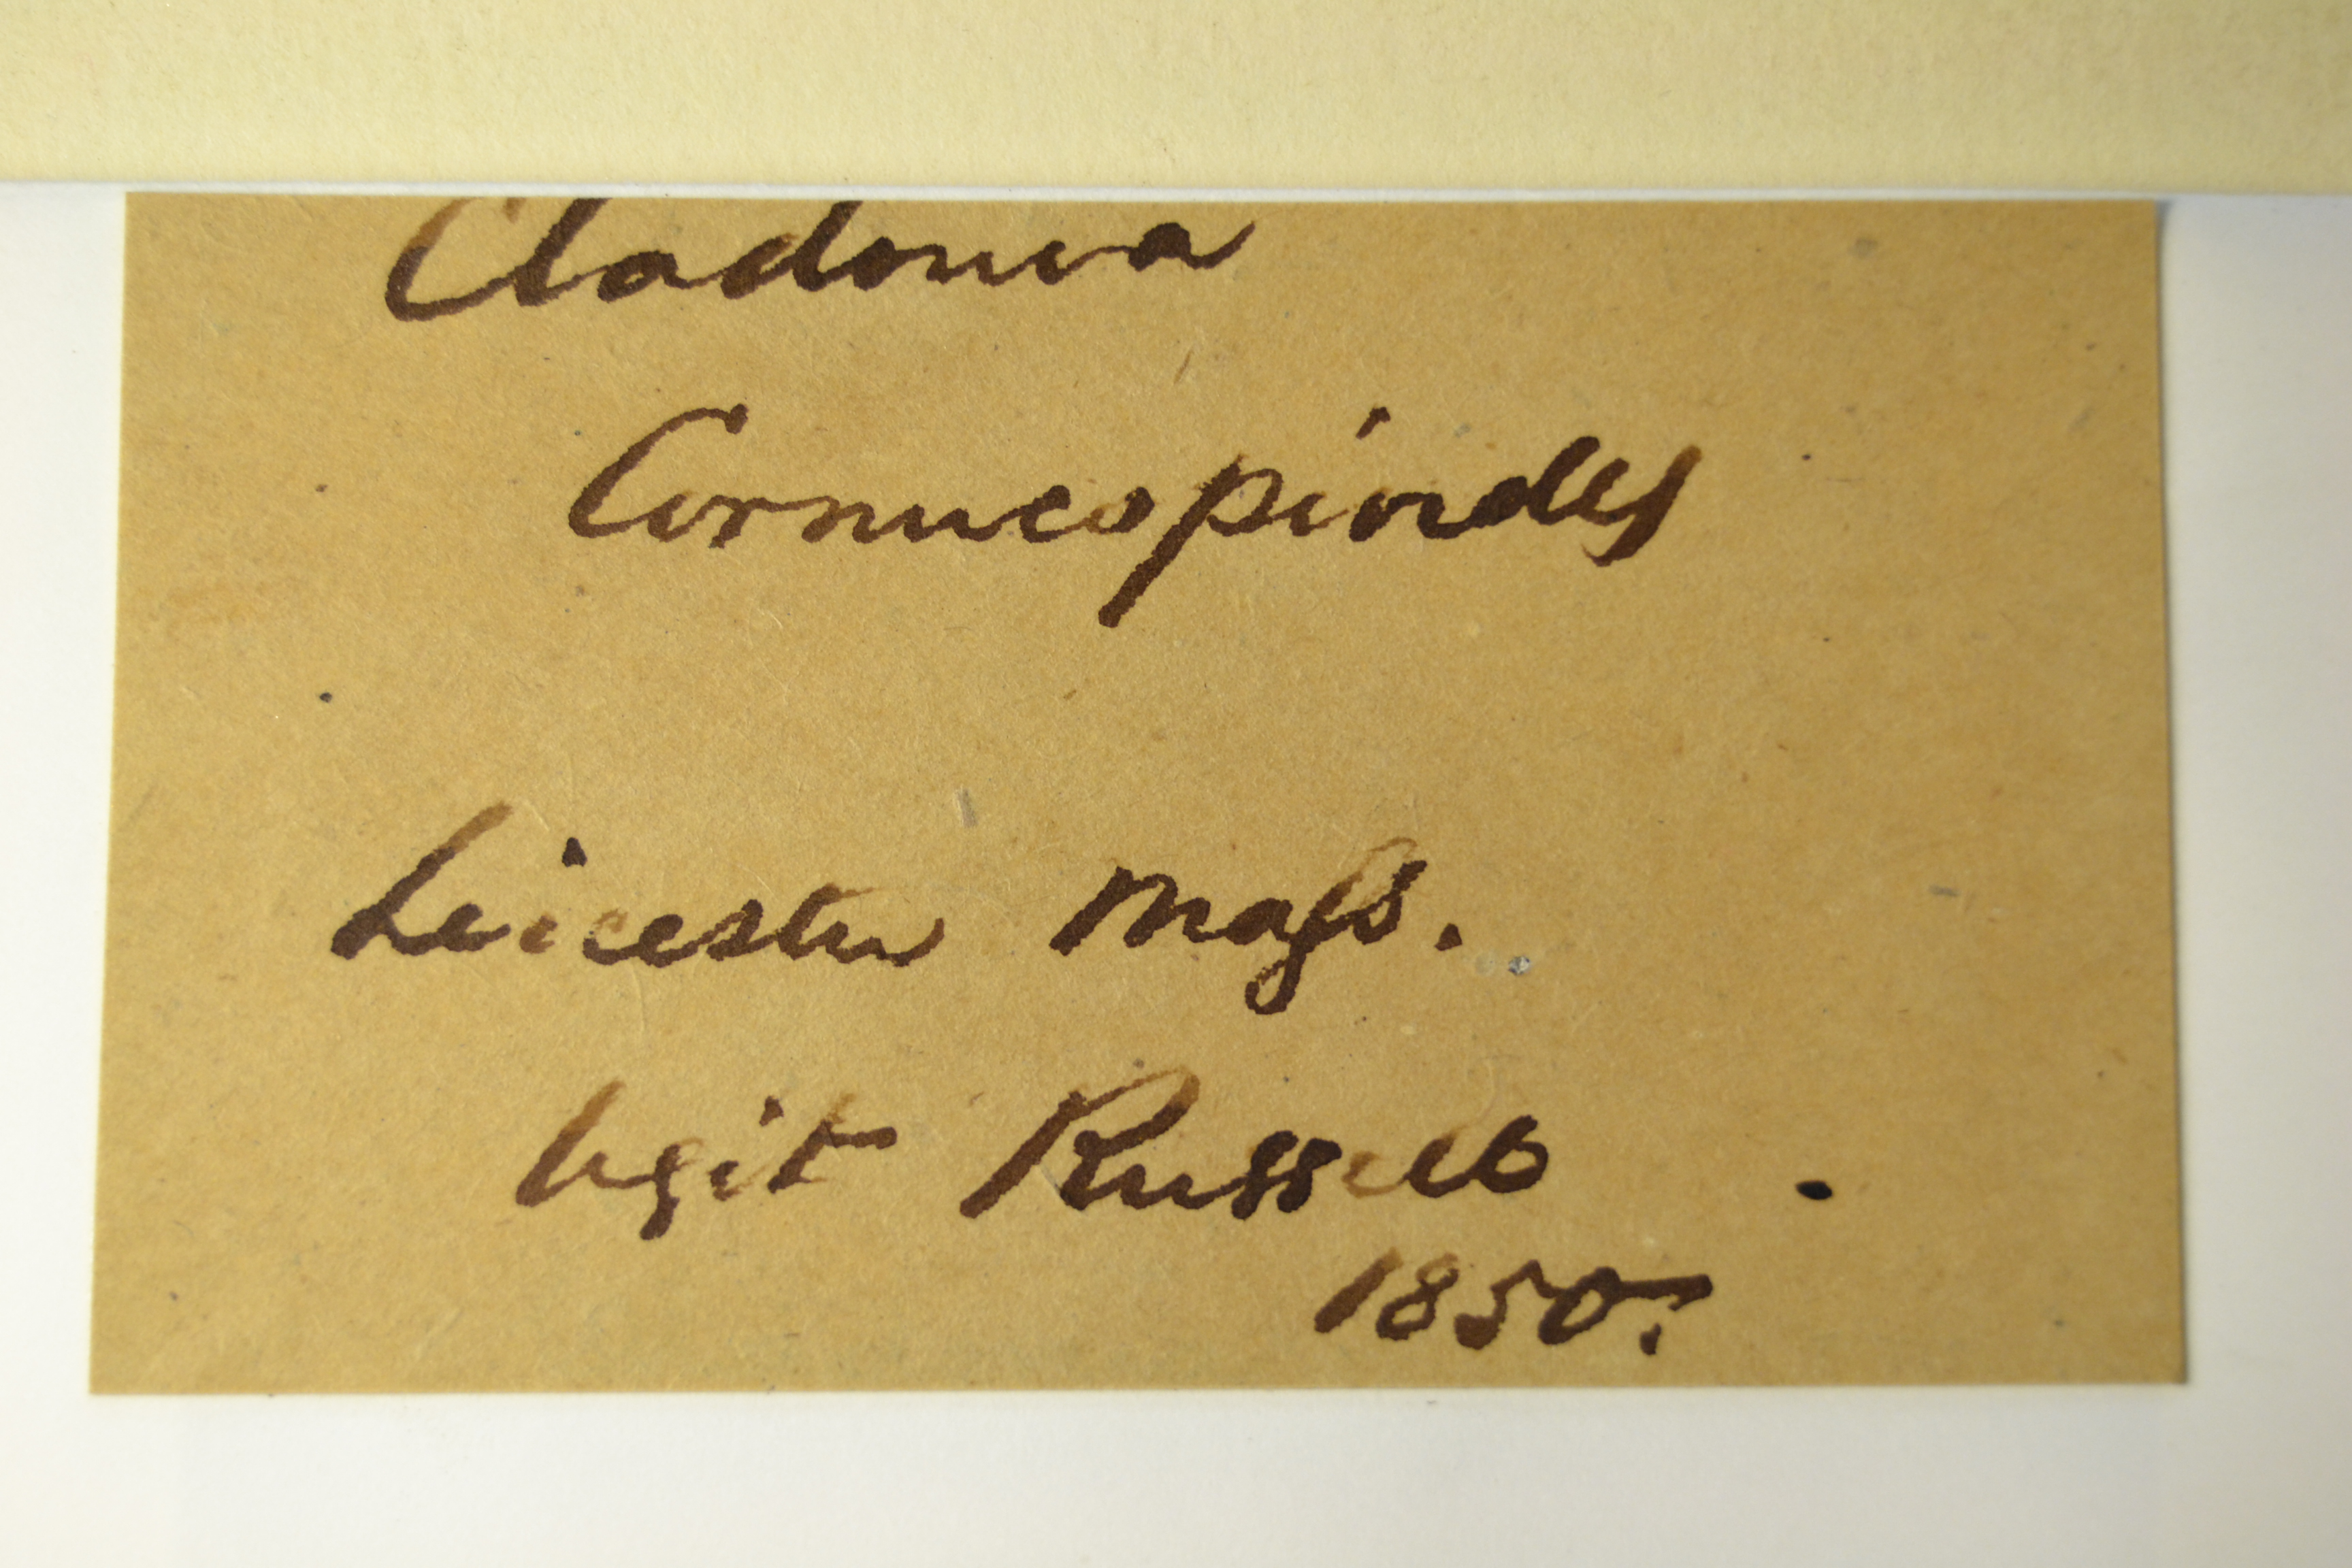 Cladonia
Cornucopioides
Leicester Mass.
legit Russell
1850.